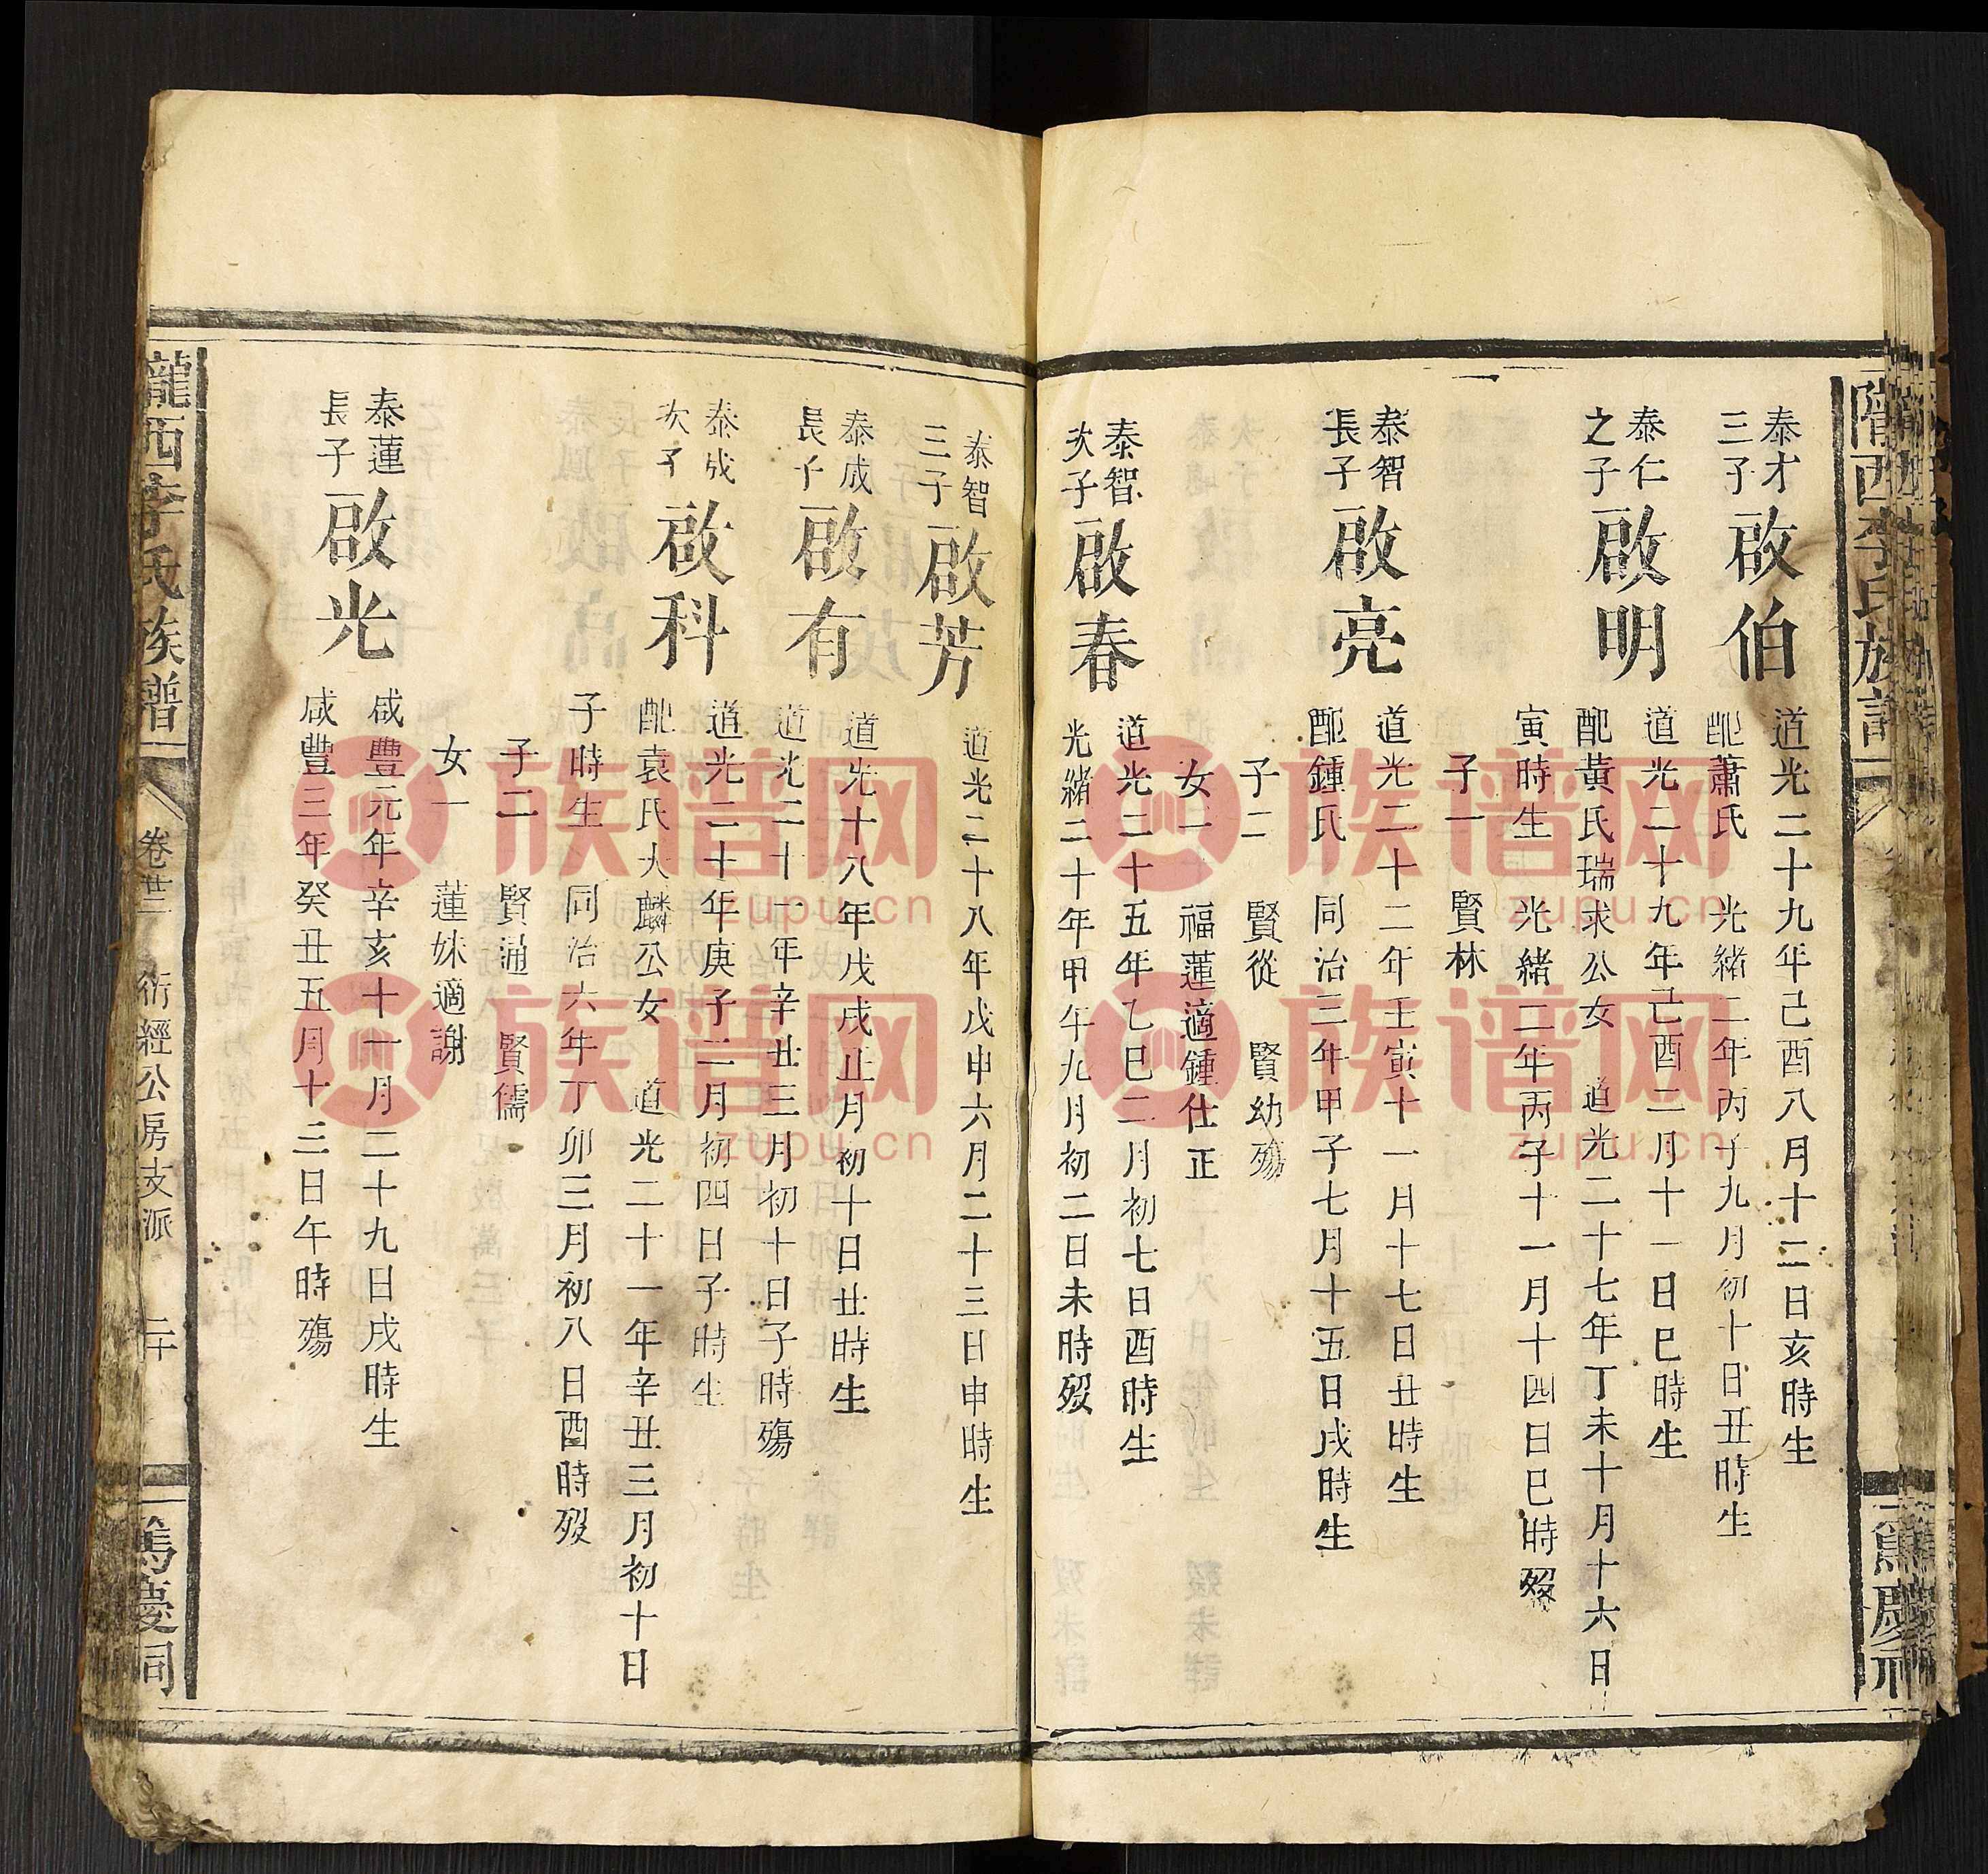 泰才
三子
啟伯
道光二十九年己酉八月十二日亥時生
配蕭氏 光緒二年丙子九月初十日丑時生
泰仁
之子
啟明
道光二十九年己酉二月十一日巳時生
配黃氏瑞求公女 道光二十七年丁未十月十六日
寅時生 光緒二年丙子十一月十四日巳時歿
子一 賢林
泰智
長子
啟亮
道光二十二年壬寅十一月十七日丑時生
配鍾氏 同治三年甲子七月十五日戌時生
子二 賢從 賢幼殤
女一 福蓮適鍾仕正
泰智
次子
啟春
道光二十五年乙巳二月初七日酉時生
光緒二十年甲午九月初二日未時歿
泰智
三子
啟芳
道光二十八年戊申六月二十三日申時生
泰成
長子
啟有
道光十八年戊戌正月初十日丑時生
道光二十一年辛丑三月初十日子時殤
泰成
次子
啟科
道光二十年庚子二月初四日子時生
配袁氏大麟公女 道光二十一年辛丑三月初十日
子時生 同治六年丁卯三月初八日酉時歿
子二 賢涌 賢儒
女一 蓮妹適謝
泰蓮
長子
啟光
咸豐元年辛亥十一月二十九日戌時生
咸豐三年癸丑五月十三日午時殤
隴西李氏族譜
卷廿三 衍經公房支派 二十
篤慶祠
族谱网
zupu.cn
族谱网
zupu.cn
族谱网
zupu.cn
族谱网
zupu.cn